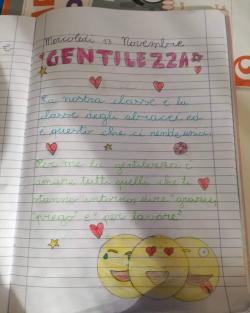 Mercoledì 13 Novembre
GENTILEZZA
La nostra classe è la
classe degli abbracci ed
è questo che ci rende unici.
Per me la gentilezza è
amare tutti quelli che ti
stanno intorno, dire "grazie,
"prego" e "per favore"